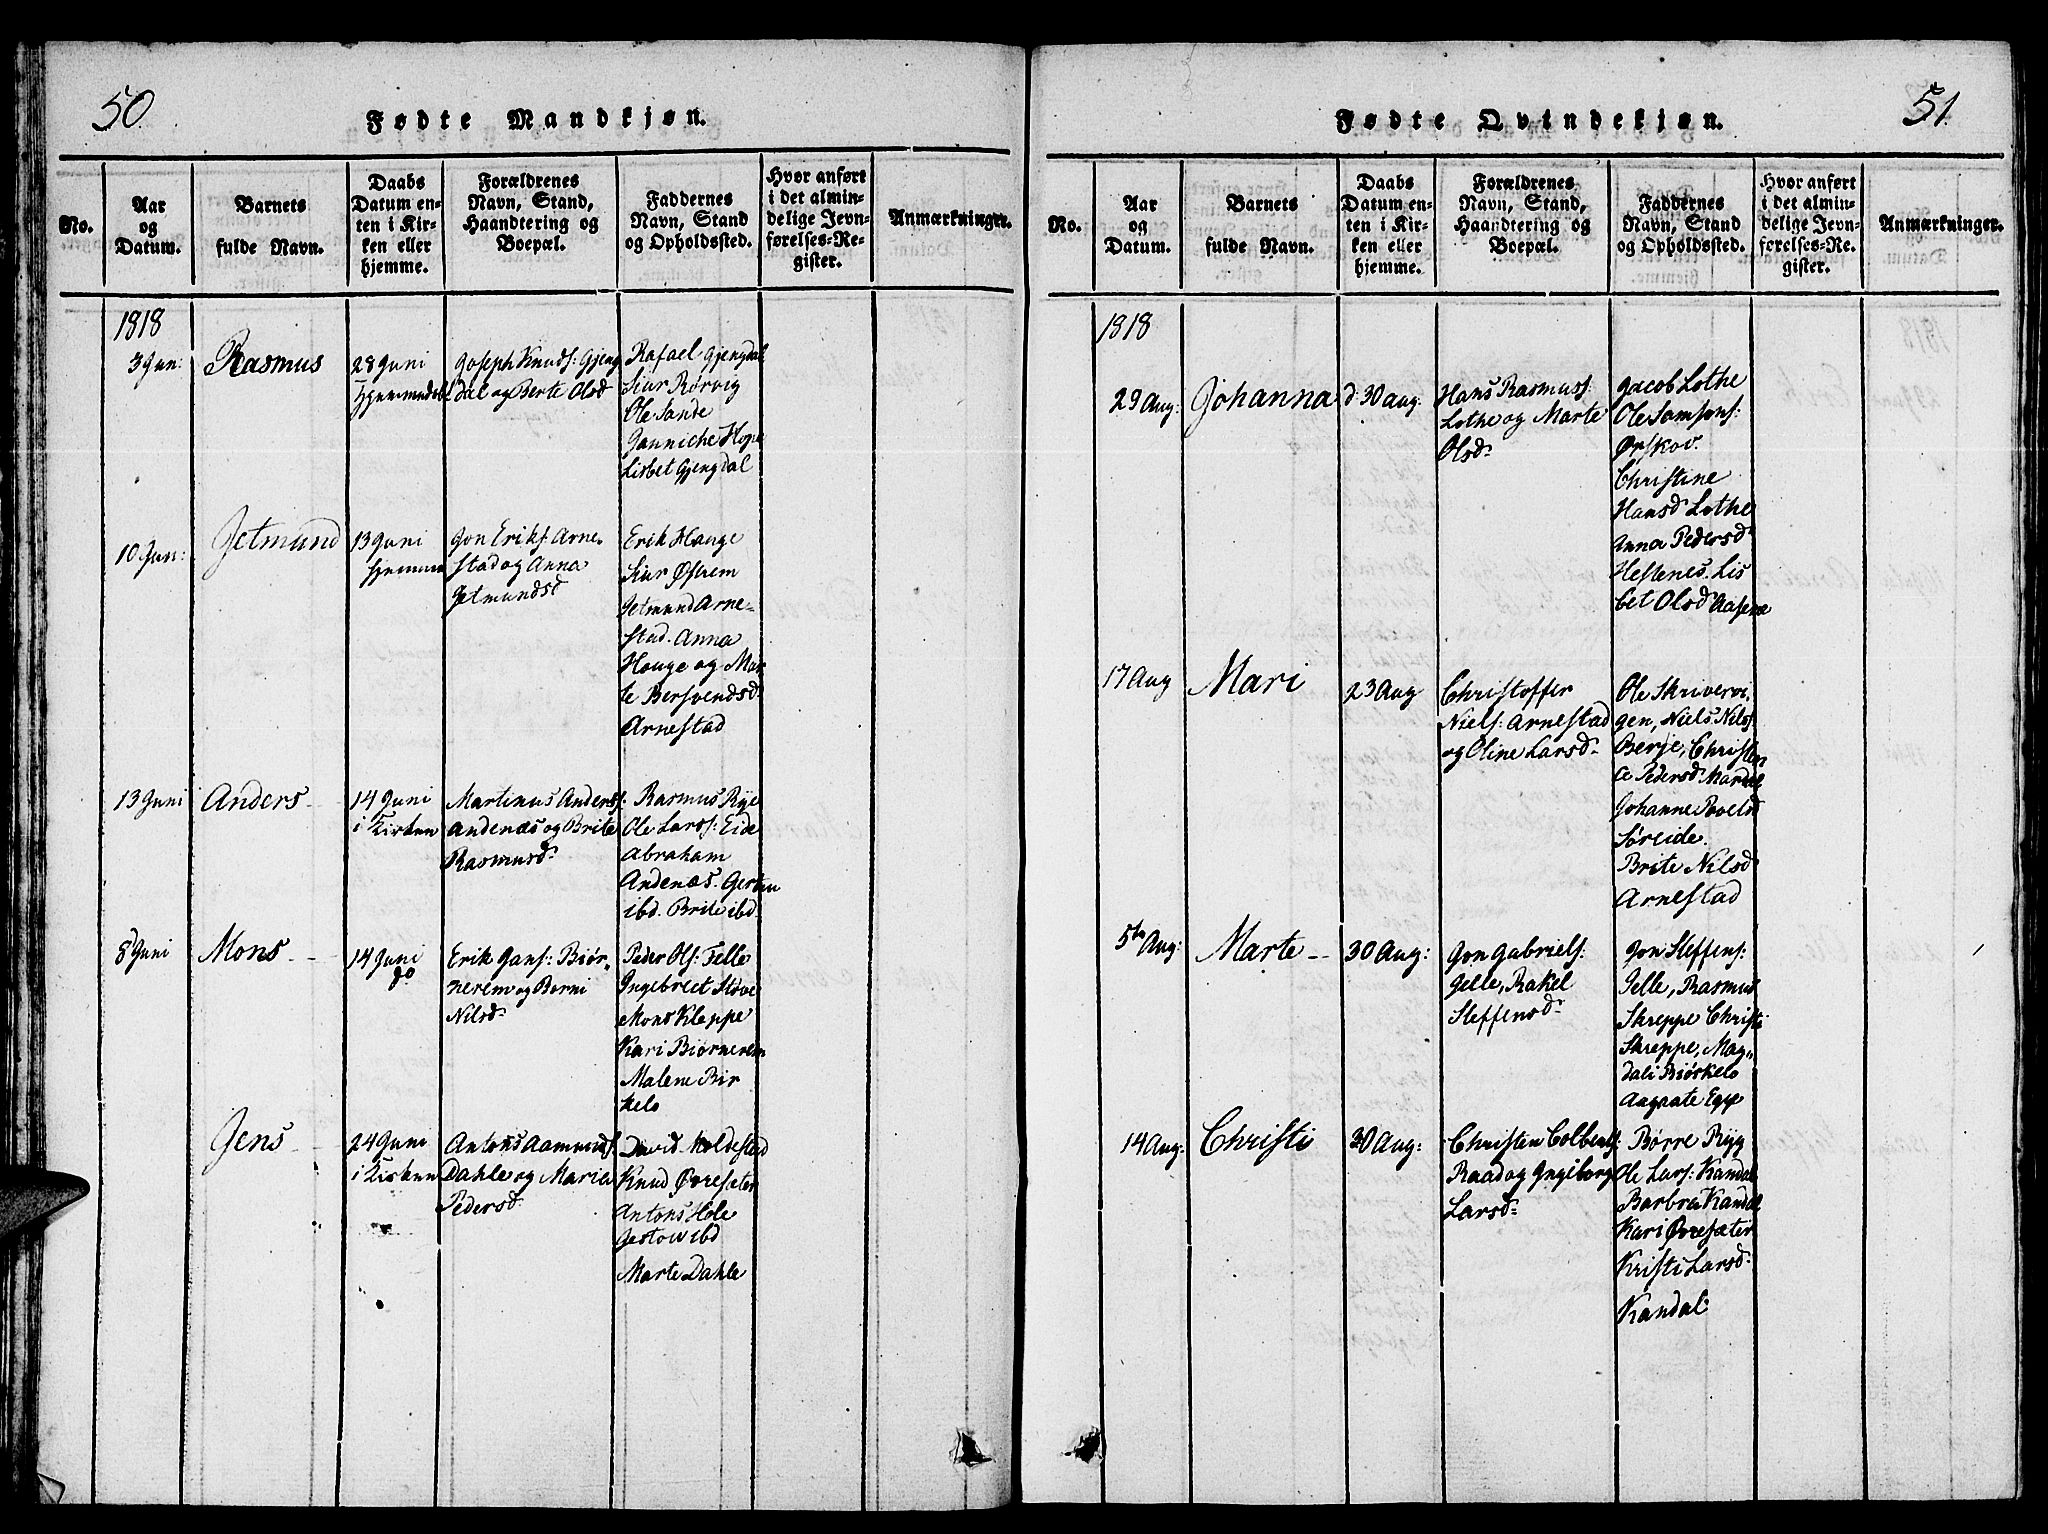 50
Fødte Mandkjøn.
No.
Aar
og
Datum.
Barnets
fulde Navn.
Daabs
Datum en-
ten i Kir-
ken eller
hjemme.
Forældrenes
Navn, Stand,
Haandtering og
Boepæl.
Faddernes
Navn, Stand
og Opholdssted.
Hvor anført
i det almin-
delige Jevn-
førelses-Re-
gister.
Anmærkninger.
1818
3 Jun:
Rasmus
28 Juni
Joseph Knuds: Gjeng
dal og Berte Olsd
Rafael Gjengdal
Siur Rørvig
Ole Sande
Janniche Hope
Lisbet Gjengdal
10 Jun:
Jetmund
13 Juni
hjemme
Jon Eriks Arne-
stad og Anna
Jetmundsd
Erik Hauge
Siur Østrem
Jetmund Arne-
stad. Anna
Houge og Mar
te Bersvendsd
Arnestad
13 Juni
Anders
14 Juni
i Kirken
Martinus Anders:
Andenæs og Brite
Rasmusd
Rasmus Rye
Ole Larss: Eide
Abraham
Andenæs. Gertru
ibd. Brite ibd.
8 Juni
Mons
14 Juni
do
Erik Jans: Biør„
nerem og Berni
Nilsd
Peder Ols: Felle
Ingebrect Støve
Mons Kleppe
Kari Biørnerem
Malene Bir
kelo
Jens
24 Juni
i Kirken
Antons Aamunds:
Dahle og Maria
Pedersd
David Holdestad
Knud Øvresæter
Antons Hole
Gestow ibd
Marte Dahle
51
Fødte Qvindekjøn.
No.
Aar
og
Datum.
Barnets
fulde Navn.
Daabs
Datum en-
ten i Kir-
ken eller
hjemme.
Forældrenes
Navn, Stand,
Haandtering og
Boepæl.
Faddernes
Navn, Stand
og Opholdssted.
Hvor anført
i det almin-
delige Jevn-
førelses-Re-
gister.
Anmærkninger.
1818
29 Aug:
Johanna
d: 30 aug:
Hans Rasmuss:
Lothe og Marte
Olsd
Jacob Lothe
Ole Samsons:
Ørskov.
Christine
Hansd Lothe
Anna Pedersd
Hestenes. Lis
bet Olsd Aasene
17 Aug
Mari
23 Aug
Christoffer
Niels: Arnestad
og Oline Larsd
Ole Skrivervi
gen, Niels Nilss
Berje, Christen
ce Pedersd Mardal
Johanne Povelsd
Søreide.
Brite Nilsd
Arnestad
5te Aug:
Marte
30 Aug:
Jon Gabriels:
Jelle, Rakel
Steffensd
Jon Steffens:
Jelle, Rasmus
Skreppe Christi
Skreppe, Mag„
dali Biørkelo
Aagaate Egge
14 Aug:
Christi
30 Aug:
Christen Colbens:
Raad og Ingeborg
Larsd
Børre Ryg
Ole Lars: Kandal
Barbra Kandal
Kari Øvresæter
Kristi Larsd
Kandal